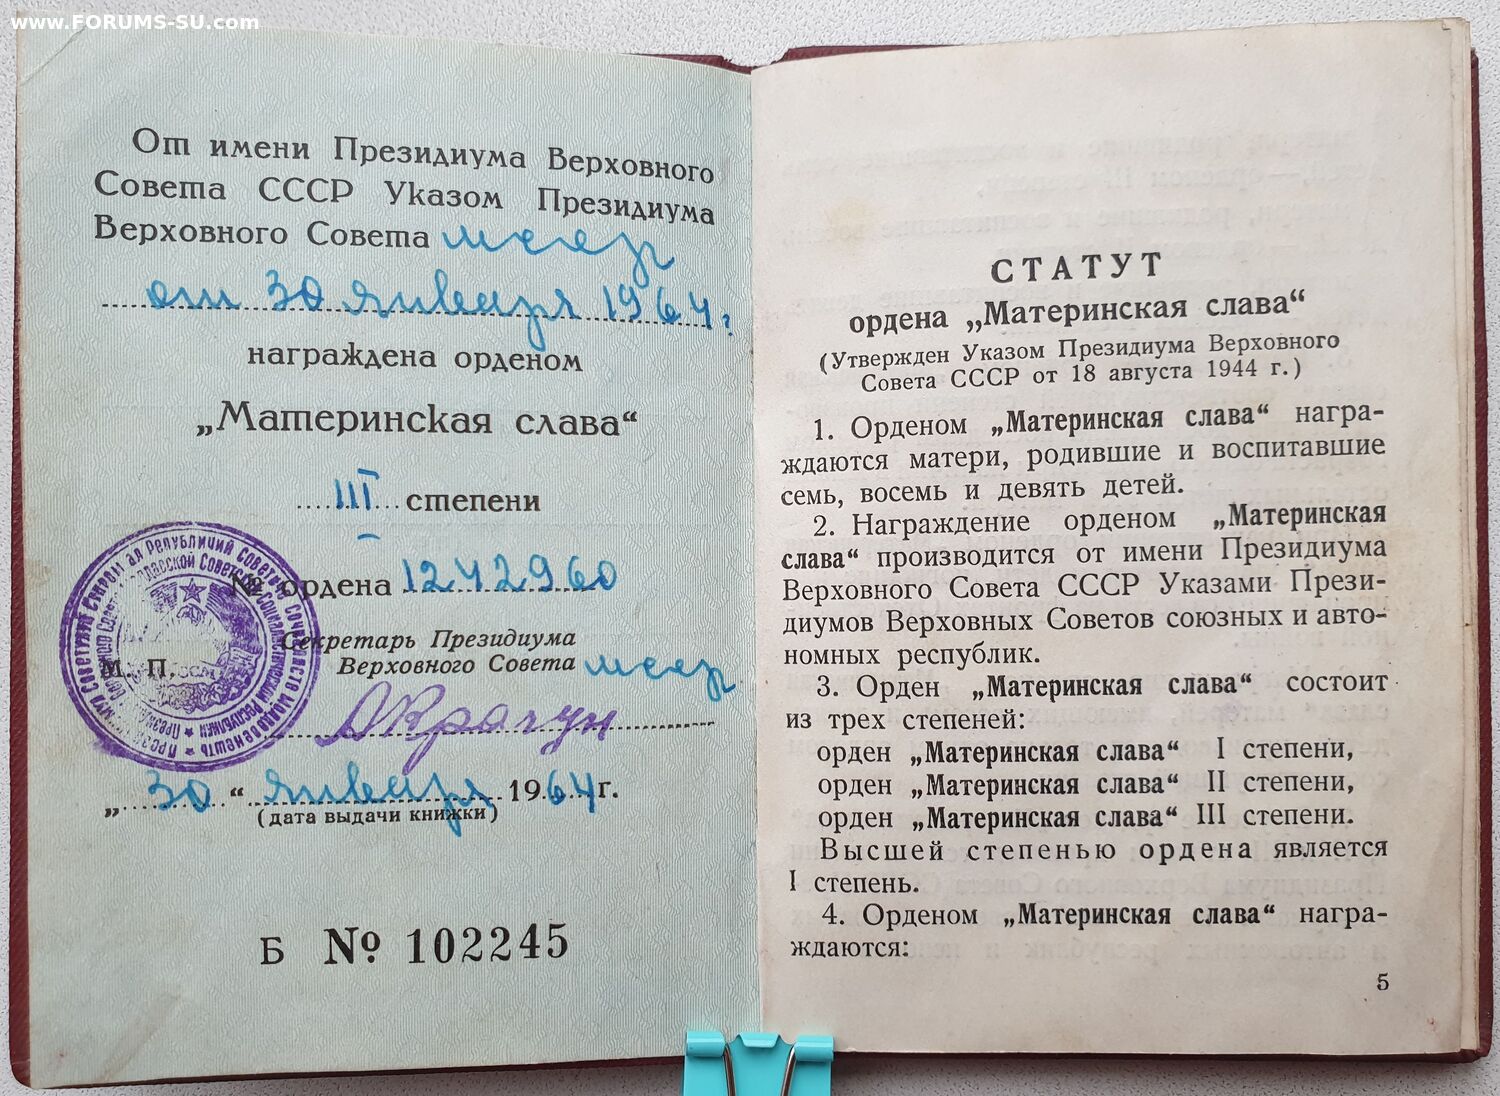 www.FORUMS-SU.com
От имени Президиума Верховного
Совета СССР Указом Президиума
Верховного Совета мсср
от 30 января 1964 г.
награждена орденом
„Материнская слава“
III степени
№ ордена 1242960
М. П.
Секретарь Президиума
Верховного Совета мсср
„30“ января 1964 г.
(дата выдачи книжки)
Б № 102245
СТАТУТ
ордена „Материнская слава“
(Утвержден Указом Президиума Верховного
Совета СССР от 18 августа 1944 г.)
1. Орденом „Материнская слава“ награ-
ждаются матери, родившие и воспитавшие
семь, восемь и девять детей.
2. Награждение орденом „Материнская
слава“ производится от имени Президиума
Верховного Совета СССР Указами Прези-
диумов Верховных Советов союзных и авто-
номных республик.
3. Орден „Материнская слава“ состоит
из трех степеней:
орден „Материнская слава“ I степени,
орден „Материнская слава“ II степени,
орден „Материнская слава“ III степени.
Высшей степенью ордена является
I степень.
4. Орденом „Материнская слава“ награ-
ждаются:
5